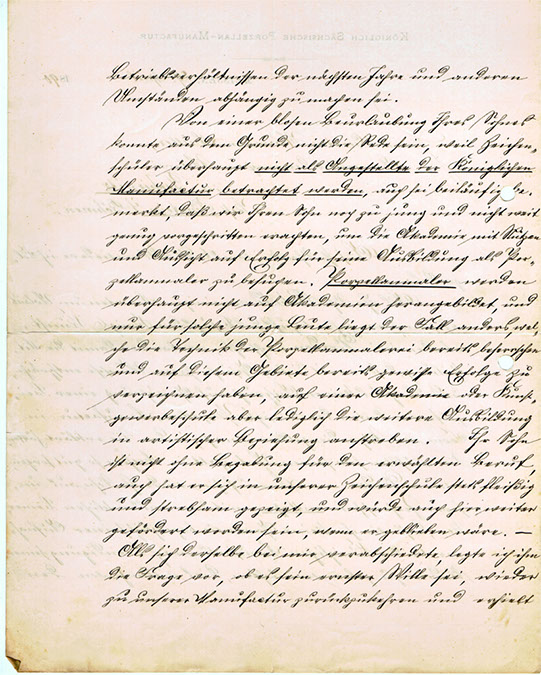 Betriebsverhältnissen der nächsten Jahre und anderen
Umständen abhängig zu machen sei.
Von einer blosen Beurlaubung Ihres Sohnes
konnte aus dem Grunde nicht die Rede sein, weil Zeichen-
schüler überhaupt nicht als Angestellte der Königlichen
Manufactur betrachtet werden, auch sei beiläufig be-
merkt, daß wir Ihren Sohn noch zu jung und nicht weit
genug vorgeschritten erachten, um die Akademie mit Nutzen
und Aussicht auf Erfolg für seine Ausbildung als Por-
zellanmaler zu besuchen. Porzellanmaler werden
überhaupt nicht auf Akademien herangebildet, und
nur für solche junge Leute liegt der Fall anders, wel-
che die Technik der Porzellanmalerei bereits beherrschen
und auf diesem Gebiete bereits gewisse Erfolge zu
verzeichnen haben, auf einer Akademie oder Kunst-
gewerbeschule aber lediglich die weitere Ausbildung
in artistischer Beziehung anstreben. Ihr Sohn
ist nicht ohne Begabung für den erwählten Beruf,
auch hat er sich in unserer Zeichenschule stets fleißig
und strebsam gezeigt, und würde auch hier weiter
gefördert worden sein, wenn er geblieben wäre. —
Als sich derselbe bei mir verabschiedete, legte ich ihm
die Frage vor, ob es sein ernster Wille sei, wieder
zu unserer Manufactur zurückzukehren und erhielt